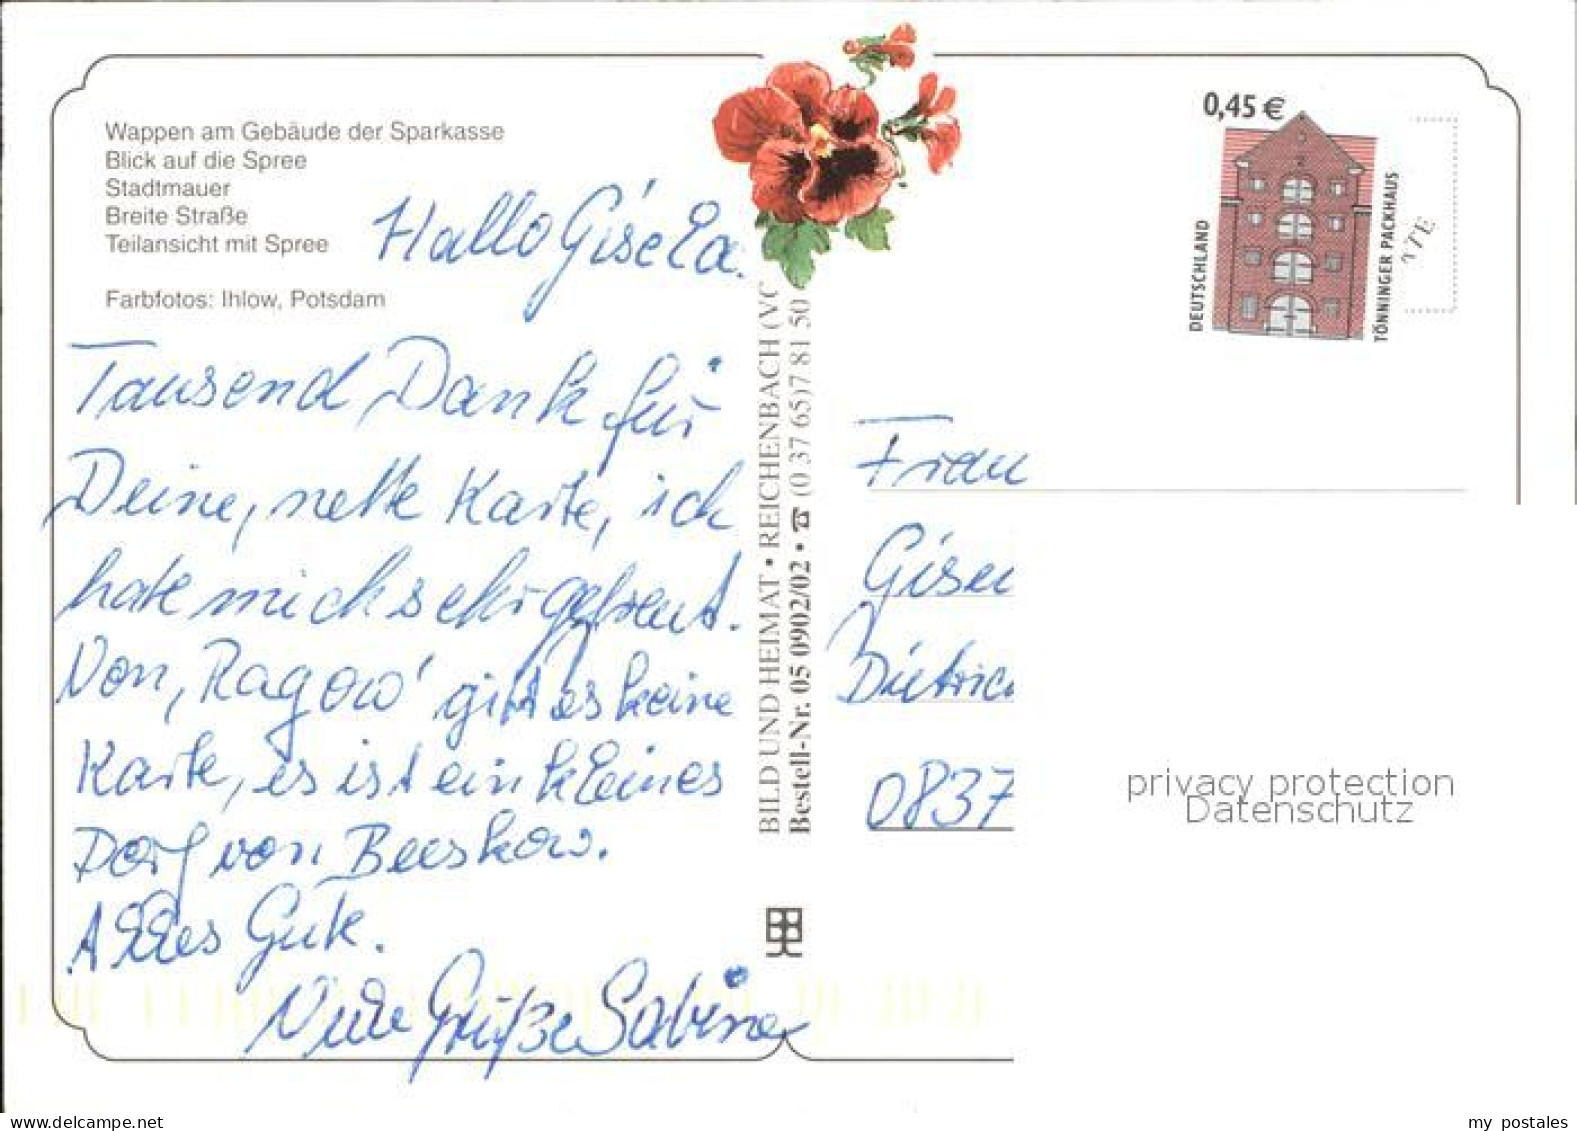 Wappen am Gebäude der Sparkasse
Blick auf die Spree
Stadtmauer
Breite Straße
Teilansicht mit Spree
Farbfotos: Ihlow, Potsdam
Hallo Gisela.
Tausend Dank für
Deine, nette Karte, ich
habe mich sehr gefreut.
Von, Ragow' gibt es keine
Karte, es ist ein kleines
Dorf von Beeskow.
Alles Gute.
Viele Grüße Sabine
BILD UND HEIMAT • REICHENBACH (VO
Bestell-Nr. 05 0902/02 • ☎ (0 37 65) 7 81 50
0,45 €
DEUTSCHLAND
TÖNNINGER PACKHAUS
TTE
Frau
Gisel
Dietrich
0837
privacy protection
Datenschutz
my postales